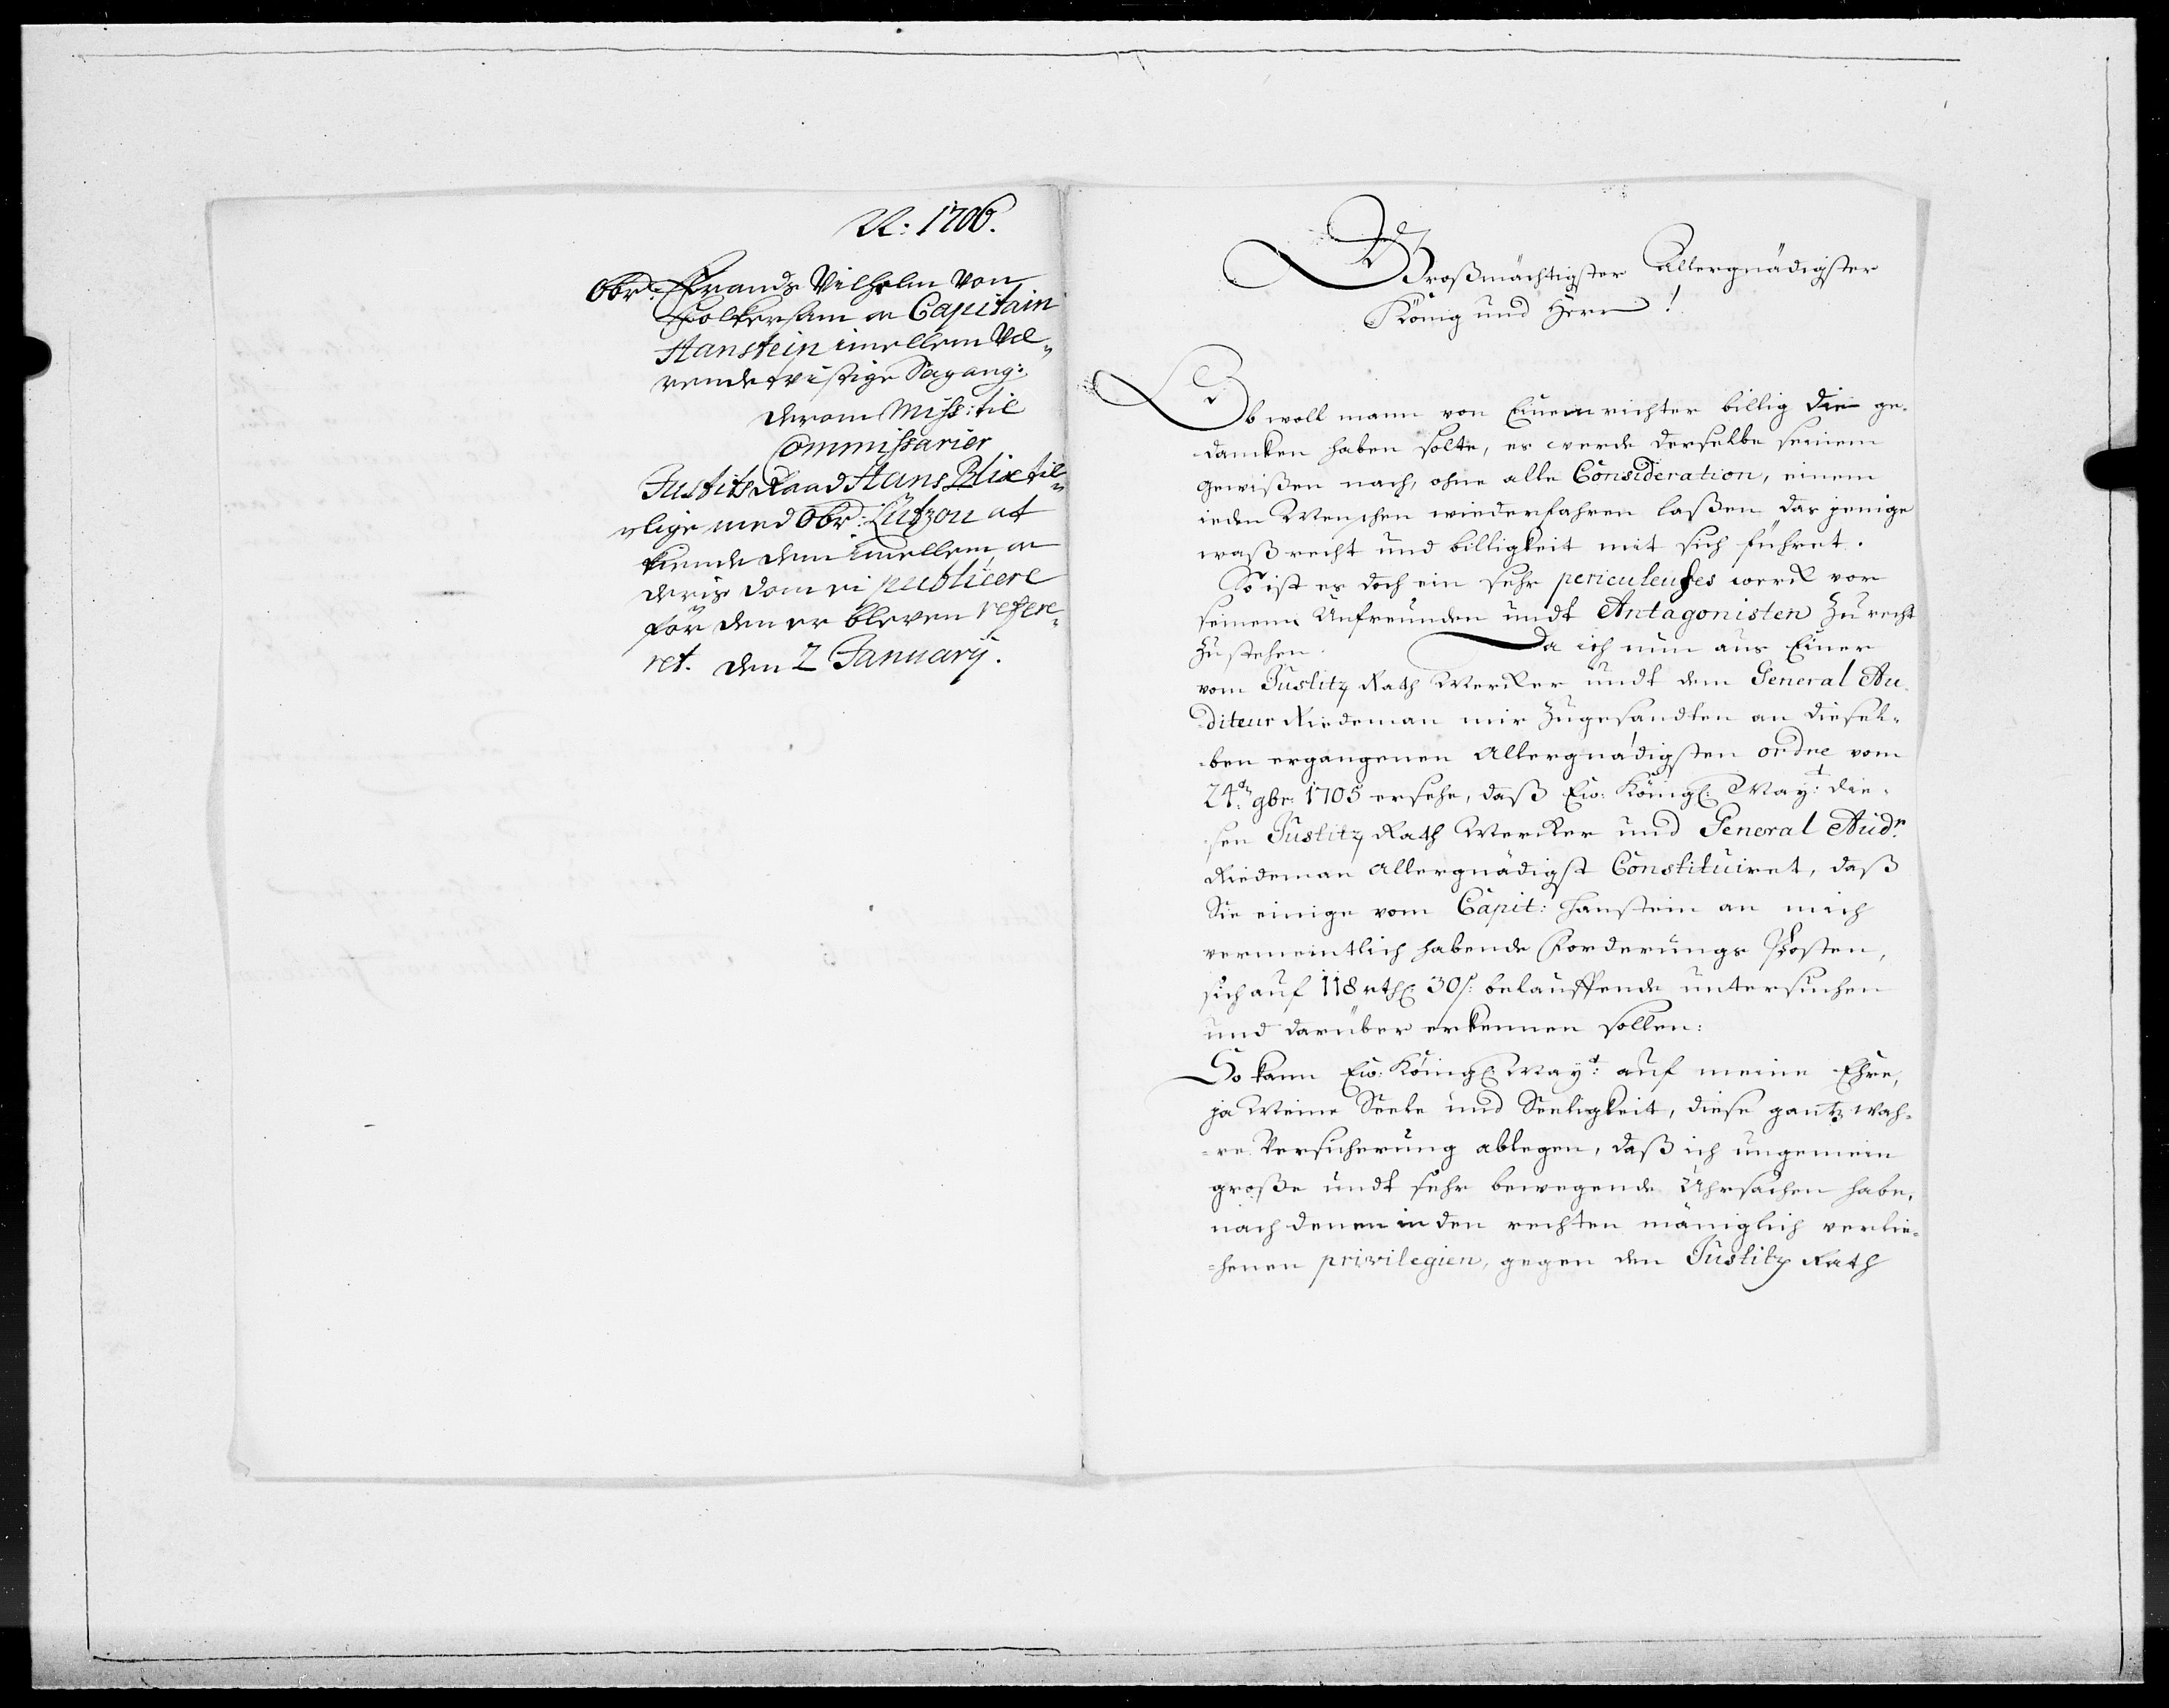 R: 1706.
Obr: Frands Vilhelm Von
Folkersam oc Capitain
Hanstein imellem Væ-
rende tvistige Sag ang:
derom Miss: til
Commissarier
Justits Raad Hans Blix til-
-lige med Obr: Lützou at
kiende dem imellem, oc
deris dom ei publicere
før den er bleven refere-
ret. den 2 January.
Großmächtigster Allergnädigster
König und Herr!
Ob woll mann von Einem richter billig die ge-
dancken haben solte, es werde derselbe seinem
gewißen nach, ohne alle Consideration, einem
ieden Menschen wiederfahren laßen das jenige
waß recht und billigkeit mit sich führet.
So ist es doch ein sehr periculeuses werck vor
seinenn Unfreunden undt Antagonisten zu recht
zu stehen. Da ich nun aus Einer
vom Justitz Rath Mercker undt dem General Au-
diteur Riedeman mir zugesandten an diesel-
ben ergangenen Allergnädigsten ordre vom
24t: 9br: 1705 ersehe, daß Ew: Königl: Mayt: die-
sen Justitz Rath Mercker und General Audr:
Riedeman Allergnädigst Constituiret, daß
Sie einige vom Capit: Hanstein an mich
vermeintlich habende Forderungs Posten,
sich auf 118 rthl: 30 s: belauffende untersuchen
und darüber erkennen sollen:
So kann Ew: Königl: Mayt: auf meine Ehre,
ja Meine Seele und Seeligkeit, diese gantz wah-
-re Versicherung ablegen, daß ich ungemein
große undt sehr bewegende Uhrsachen habe,
nach denen in den rechten mäniglich verlie-
-henen privilegien, gegen den Justitz Rath